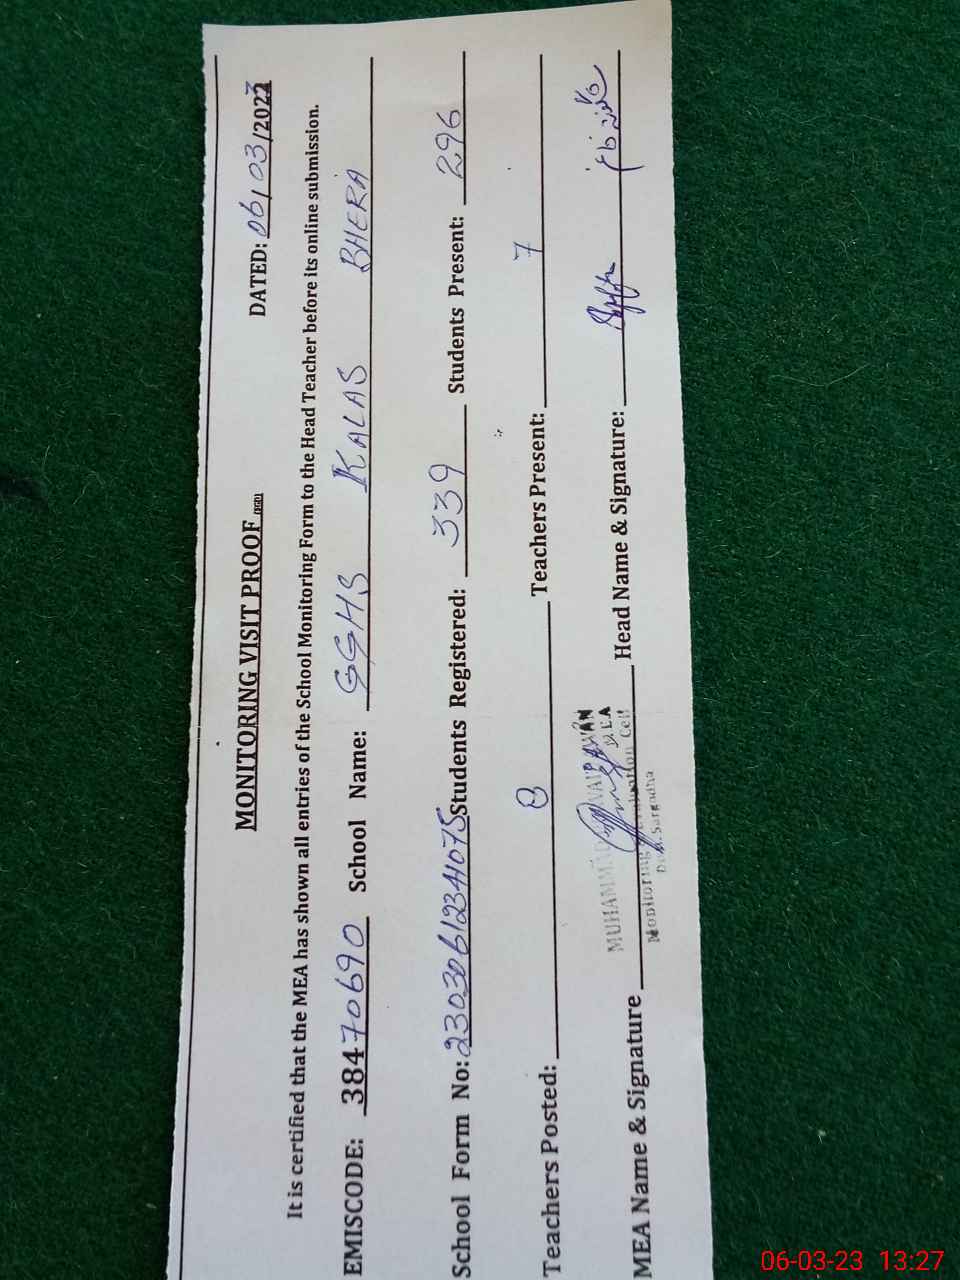 MONITORING VISIT PROOF
DATED: 06/03/2023
It is certified that the MEA has shown all entries of the School Monitoring Form to the Head Teacher before its online submission.
EMISCODE: 38470690 School Name: GGHS KALAS BHERA
School Form No: 23030612341075 Students Registered: 339 Students Present: 296
Teachers Posted: 8 Teachers Present: 7
MEA Name & Signature Head Name & Signature:
MUHAMMAD
MEA
Monitoring Cell
Sargodha
06-03-23 13:27